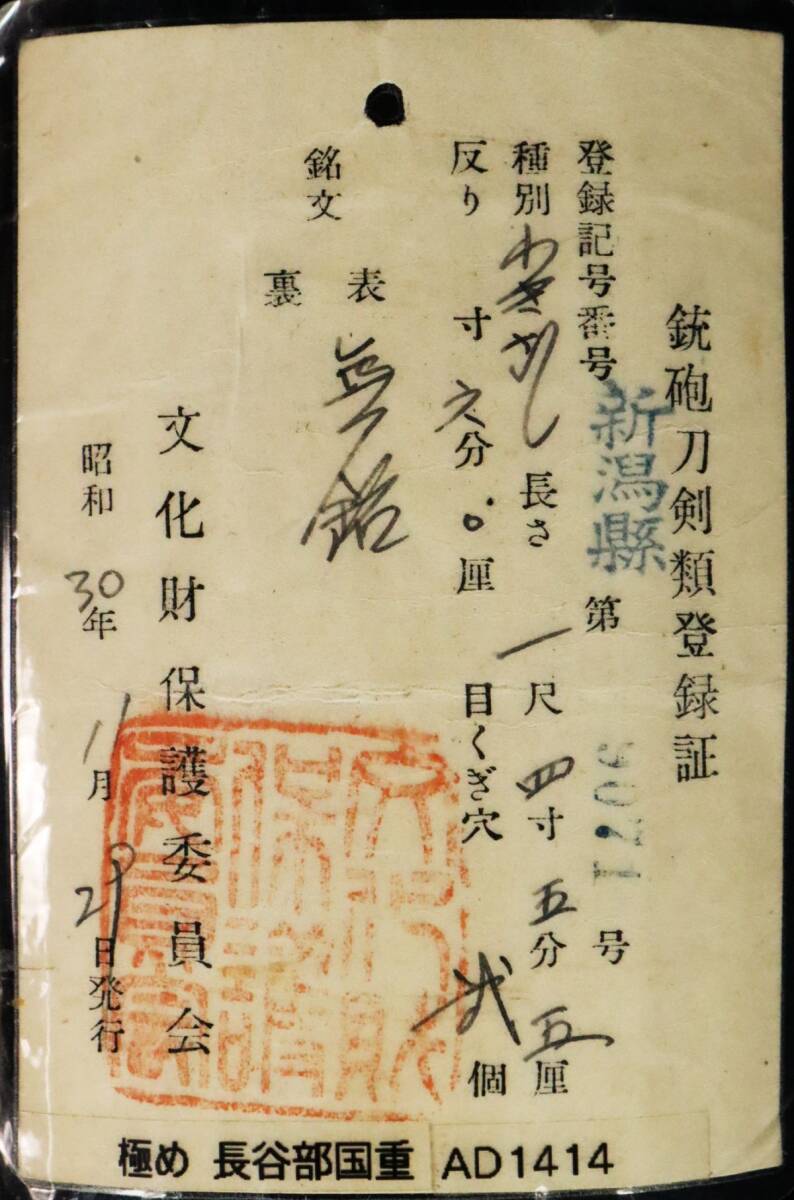 銃砲刀剣類登録証
登録記号番号 新潟縣 第 9071 号
種別 わきざし 長さ 一尺四寸五分五厘
反り 寸六分〇厘 目くぎ穴 弐個
銘文 表 無銘
裏
文化財保護委員会
昭和30年11月29日発行
極め 長谷部国重 AD1414